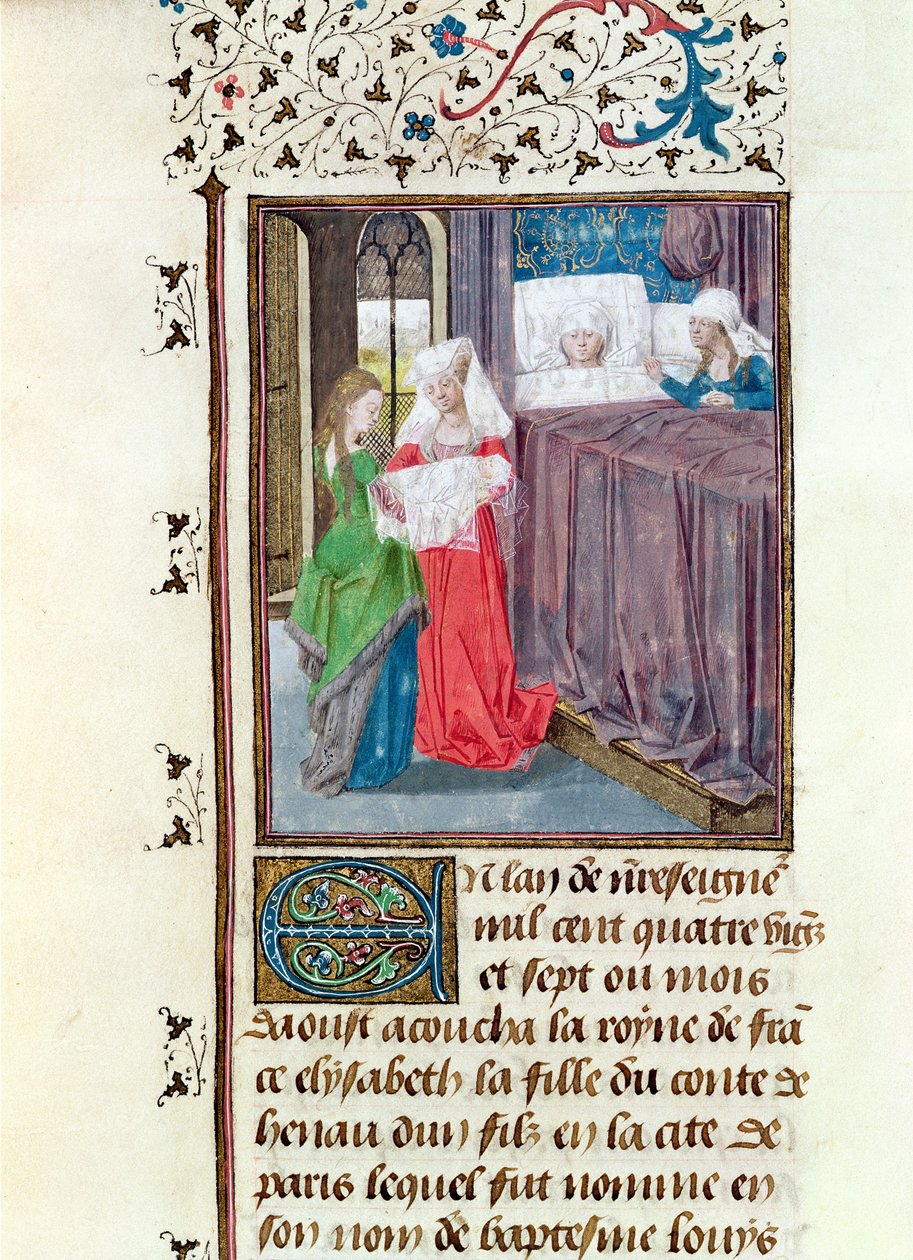 En lan de nr̄e seignē
mil cent quatre vīgz
et sept ou mois
daoust acoucha la royne de frā
ce elysabeth la fille du conte de
henau dun filz en la cite de
paris lequel fut nomme en
son nom de baptesme louys